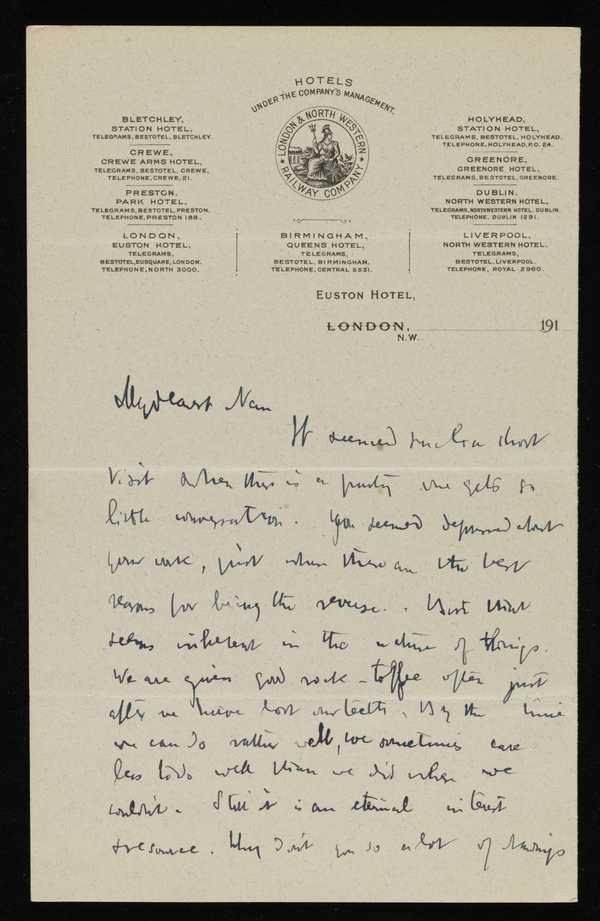 HOTELS
UNDER THE COMPANY'S MANAGEMENT.
LONDON & NORTH WESTERN
RAILWAY COMPANY
BLETCHLEY,
STATION HOTEL,
TELEGRAMS, BESTOTEL, BLETCHLEY.
CREWE,
CREWE ARMS HOTEL,
TELEGRAMS, BESTOTEL, CREWE,
TELEPHONE, CREWE, 21.
PRESTON,
PARK HOTEL,
TELEGRAMS, BESTOTEL, PRESTON.
TELEPHONE, PRESTON 188.
LONDON,
EUSTON HOTEL,
TELEGRAMS,
BESTOTEL, EUSQUARE, LONDON.
TELEPHONE, NORTH 3000.
BIRMINGHAM,
QUEENS HOTEL,
TELEGRAMS,
BESTOTEL, BIRMINGHAM.
TELEPHONE, CENTRAL 5531.
HOLYHEAD,
STATION HOTEL,
TELEGRAMS, BESTOTEL, HOLYHEAD.
TELEPHONE, HOLYHEAD, P.O. 24.
GREENORE,
GREENORE HOTEL,
TELEGRAMS, BESTOTEL, GREENORE.
DUBLIN,
NORTH WESTERN HOTEL,
TELEGRAMS, NORTHWESTERN HOTEL, DUBLIN.
TELEPHONE, DUBLIN 1291.
LIVERPOOL,
NORTH WESTERN HOTEL.
TELEGRAMS,
BESTOTEL, LIVERPOOL.
TELEPHONE, ROYAL 2960.
EUSTON HOTEL,
LONDON, 191
N.W.
My dearest Nan
It seemed such a short
visit & when there is a party one gets so
little conversation. You seemed depressed about
your work, just when there are the best
reasons for being the reverse. But that
seems inherent in the nature of things.
We are given good rock-toffee often just
after we have lost our teeth. By the time
we can do rather well, we sometimes care
less to do well than we did when we
couldn't. Still it is an eternal interest
& resource. Why don't you do a lot of drawings